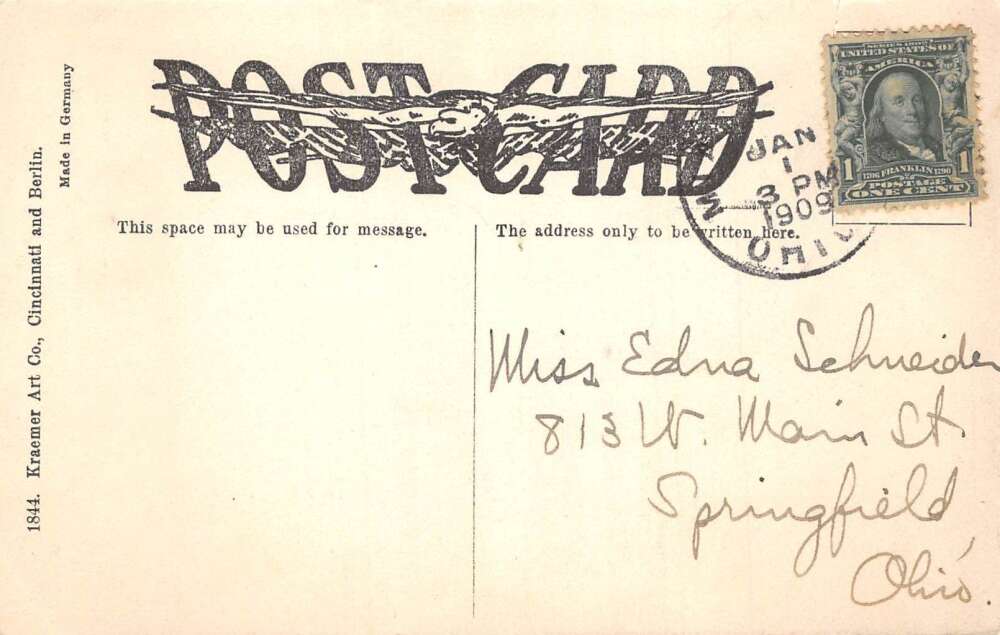 POST CARD
Made in Germany
1844. Kraemer Art Co., Cincinnati and Berlin.
This space may be used for message.
The address only to be written here.
JAN
1
3 PM
1909
OHIO
SERIES 1902
UNITED STATES OF
AMERICA
1706 FRANKLIN 1790
1 1
POSTAGE
ONE CENT
Miss Edna Schneider
813 W. Main St.
Springfield
Ohio.